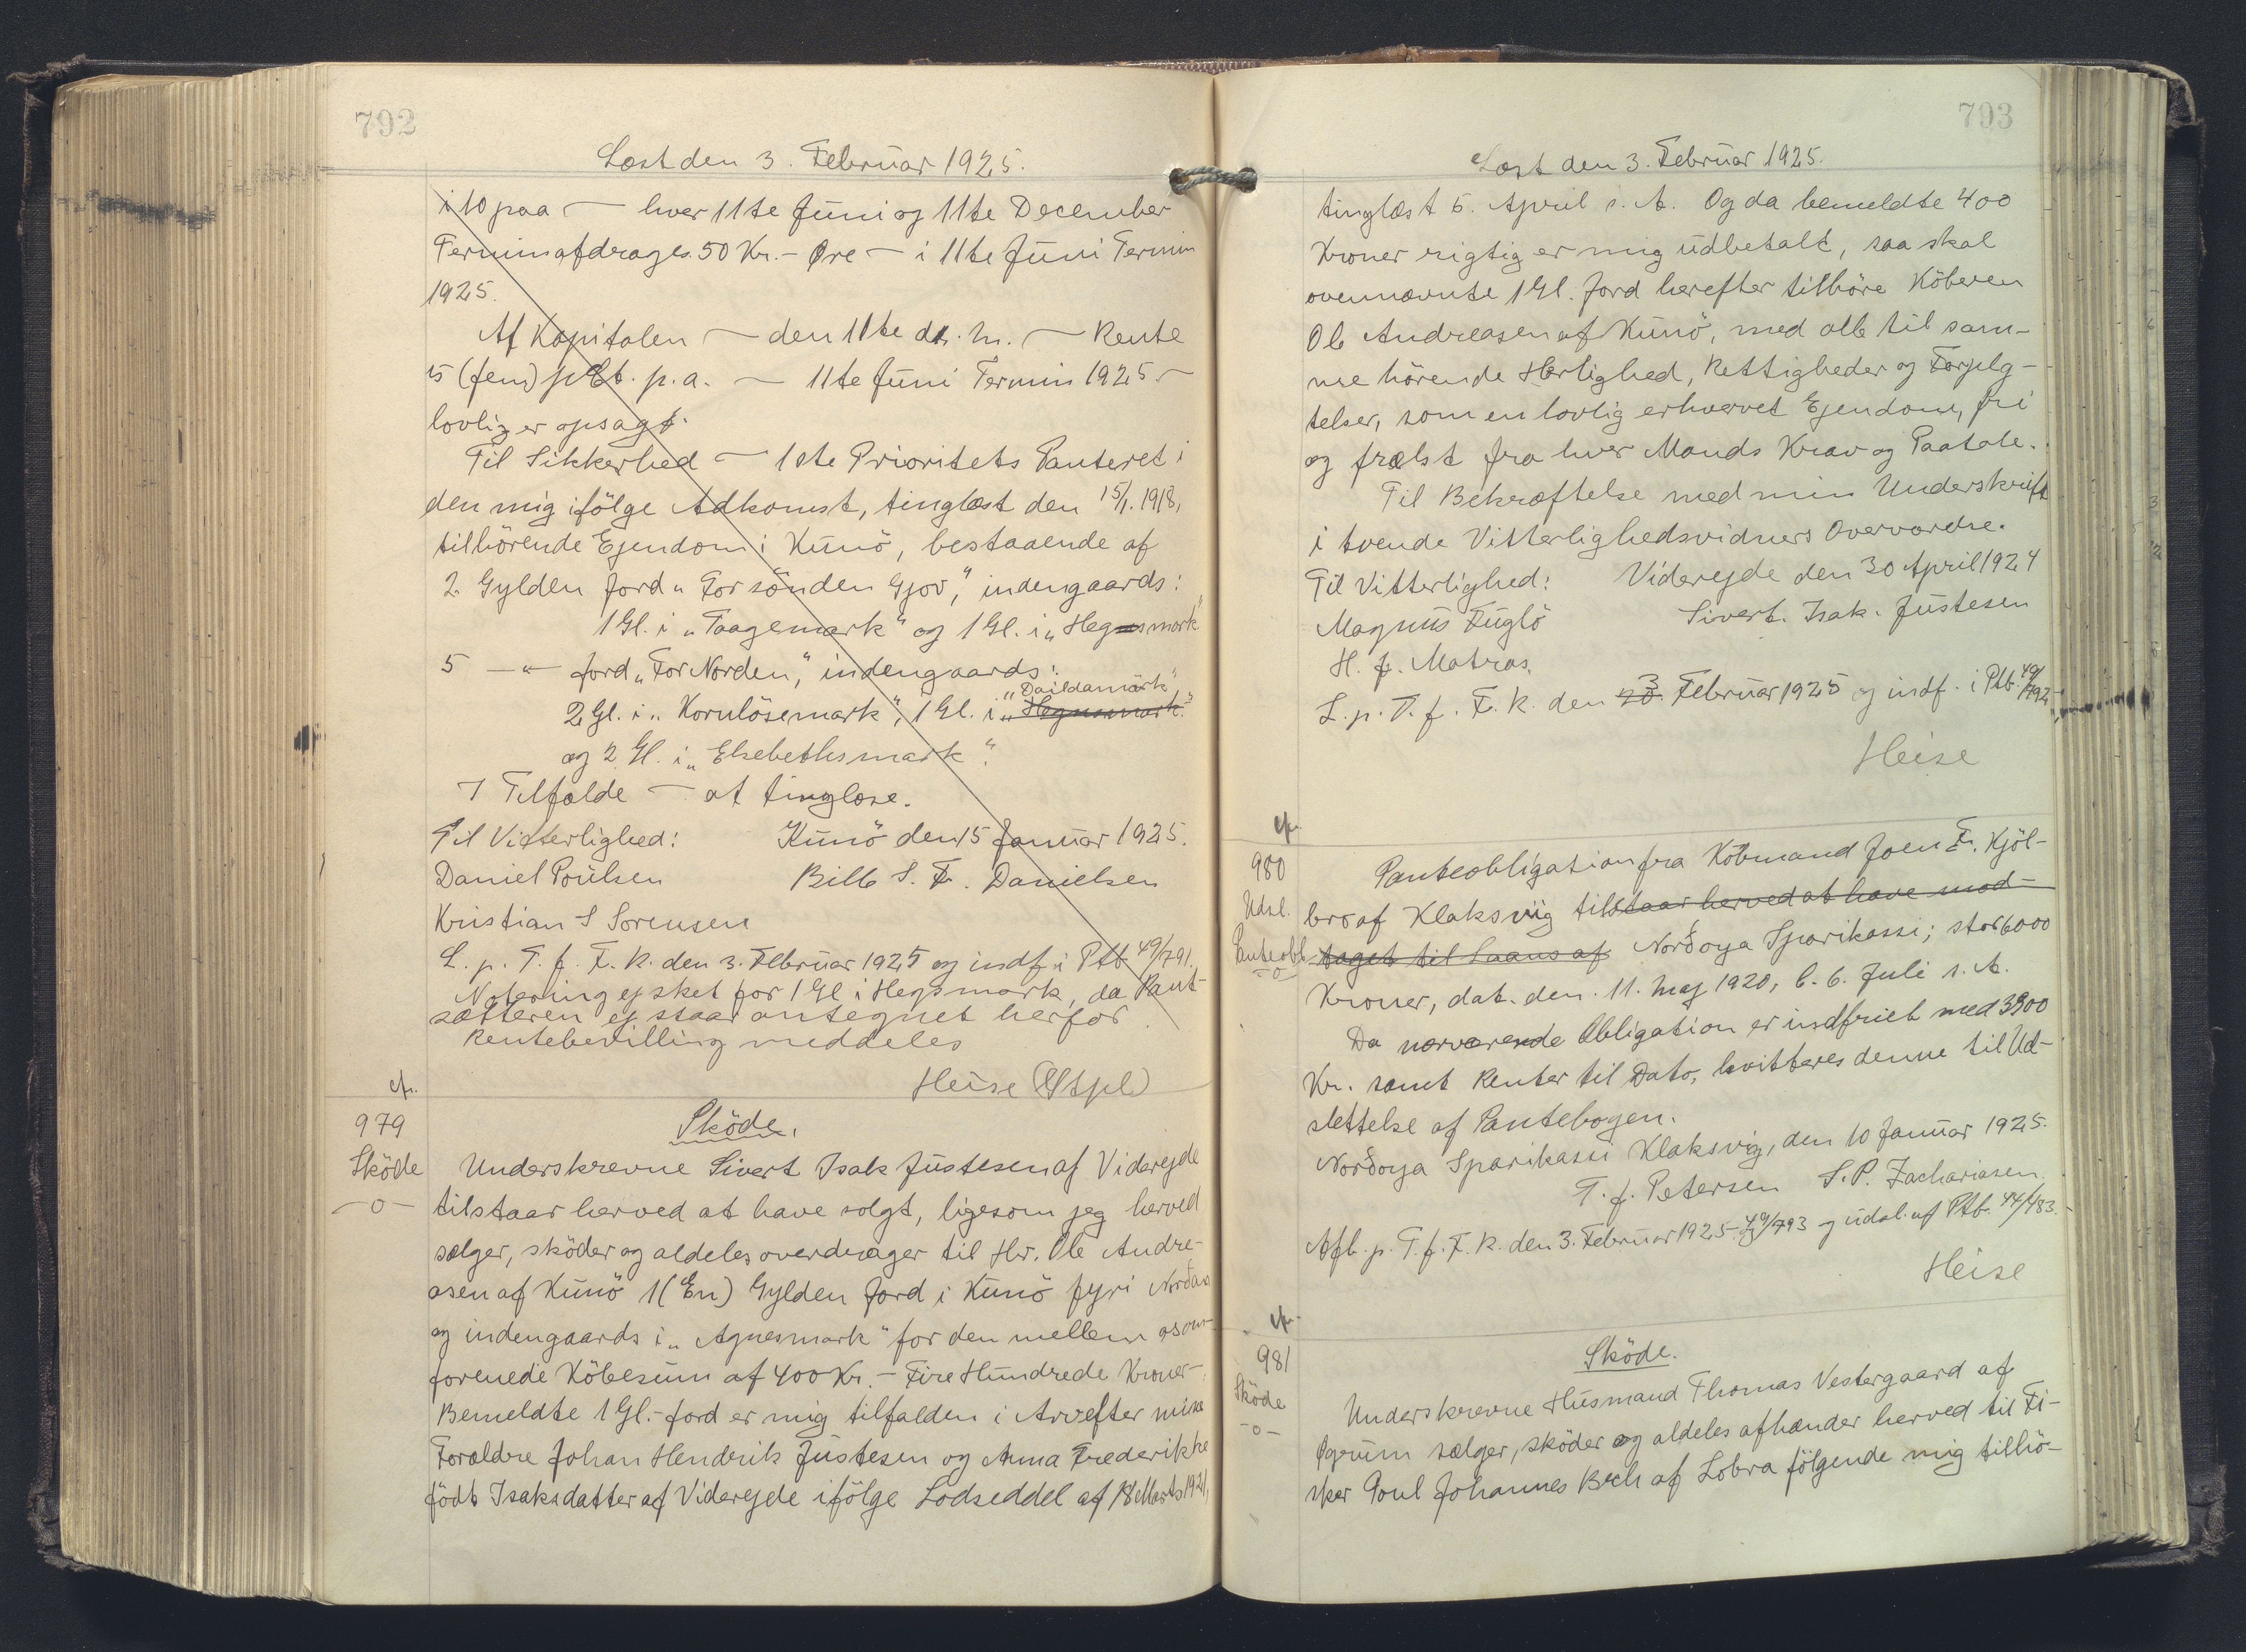 792
Læst den 3. Februar 1925.
i 10 paa — hver 11te Juni og 11te December
Termin afdrages 50 Kr. - Øre — i 11te Juni Termin
1925.
Af Kapitalen — den 11te ds. M. — Rente
5 (fem) pCt. p. a. — 11te Juni Termin 1925 —
lovlig er opsagt.
Til Sikkerhed — 1ste Prioritets Panteret i
den mig ifölge Adkomst, tinglæst den 15/1. 1918,
tilhörende Ejendom i Kunö, bestaaende af
2 Gylden Jord „For sönden Gjov", indengaards:
1 Gl. i „Taagemark" og 1 Gl. i „Hegnsmark"
5 —"— Jord „For Norden", indengaards:
2 Gl. i „Kornlösemark", 1 Gl. i „Hegnsmark" „Daildamark"
og 2 Gl. i „Elsebethsmark".
I Tilfælde — at tinglæse.
Til Vitterlighed: Kunö den 15 Januar 1925.
Daniel Poulsen Bille S. F. Danielsen
Kristian S Sorensen
L. p. T. f. F. K. den 3. Februar 1925 og indf. i Ptb. 49/791.
Notering ej sket for 1 Gl i Hegsmark, da Pant-
sætteren ej staar antegnet herfor
Rentebevilling meddeles
Heise (Stpl)
cfr.
979
Sköde
—o—
Sköde.
Underskrevne Sivert Isak Justesen af Viderejde
tilstaar herved at have solgt, ligesom jeg herved
sælger, sköder og aldeles overdrager til Hr. Ole Andre-
asen af Kunö 1 (En) Gylden Jord i Kunö fyri Norðan
og indengaards i „Agnesmark" for den mellem os om-
forenede Köbesum af 400 Kr. - Fire Hundrede Kroner -
Bemeldte 1 Gl. Jord er mig tilfalden i Arv efter mine
Forældre Johan Hendrik Justesen og Anna Frederikke
födt Isaksdatter af Viderejde ifölge Lodseddel af 18 Marts 1921,
793
Læst den 3. Februar 1925.
tinglæst 6. April s. A. Og da bemeldte 400
Kroner rigtig er mig udbetalt, saa skal
ovennævnte 1 Gl. Jord herefter tilhöre Köberen
Ole Andreasen af Kunö, med alle til sam-
me hörende Herlighed, Rettigheder og Forplig-
telser, som en lovlig erhvervet Ejendom, fri
og frælst fra hver Mands Krav og Paatale.
Til Bekræftelse med min Underskrift
i tvende Vitterlighedsvidners Overværelse.
Til Vitterlighed: Viderejde den 30 April 1924
Magnus Fuglö Sivert. Isak. Justesen
H. J. Matras.
L. p. T. f. F. K. den 3 Februar 1925 og indf. i Ptb. 49/792
Heise
cfr.
980
Udsl.
Panteobl.
—o—
Panteobligation fra Köbmand Joen F. Kjöl-
bro af Klaksvig tilstaar herved at have mod-
taget til Laans af Norðoya Sparikassi; stor 6000
Kroner, dat. den. 11. Maj 1920, l. 6. Juli s. A.
Da nærværende Obligation er indfriet med 3900
Kr. samt Renter til Dato, kvitteres denne til Ud-
slettelse af Pantebogen.
Norðoya Sparikassi Klaksvig, den 10 Januar 1925.
T. J. Petersen S. P. Zachariasen
Afl. p. T. f. F. K. den 3. Februar 1925 49/793 og udsl. af Ptb. 44/483.
Heise
cfr.
981
Sköde
—o—
Sköde.
Underskrevne Husmand Thomas Vestergaard af
sælger, sköder og aldeles afhænder herved til Fi-
sker Poul Johannes Bech af Lobra fölgende mig tilhö-